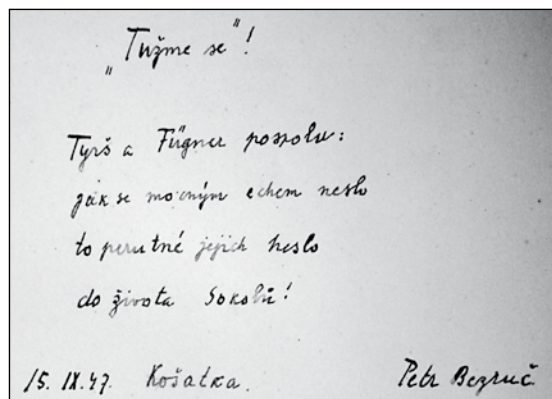 „Tužme se"!
Tyrš a Fügner pospolu:
jak se mocným echem neslo
to perutné jejich heslo
do života Sokolů!
15. IX. 47. Košatka. Petr Bezruč